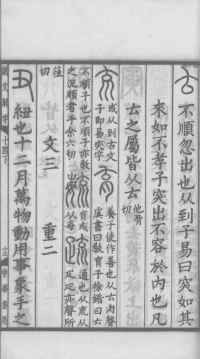 𠫓 不順忽出也从到子易曰突如其
來如不孝子突出不容於內也凡
𠫓之屬皆从𠫓 他骨切
㐬 或从到古文子即易突字 育 養子使作善也从𠫓肉聲虞書曰教育子徐鍇曰𠫓
不順子也不順子亦教之況順者乎余六切 毓 育或从每 疏 通也从㐬从疋疋亦聲所
切 文三 重二
丑 紐也十二月萬物動用事象手之
說文解字 十四下